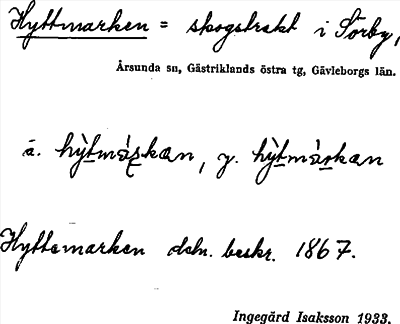 Hyttmarken = skogstrakt i Sörby,
Årsunda sn, Gästriklands östra tg, Gävleborgs län.
ä. hỳtmàskan, y. hỳtmàrkan
Hyttemarken dom. beskr. 1867.
Ingegärd Isaksson 1933.